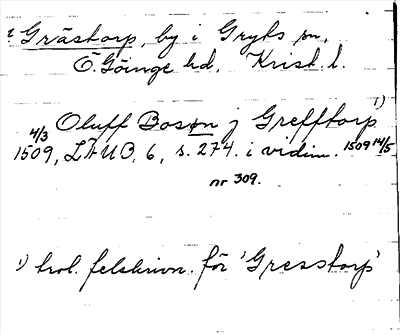 Grästorp, by i Gryts sn,
Ö. Göinge hd. Krist. l.
Oluff Bosøn j Grefftorp 1)
4/3 1509, LÄUB, 6, s. 274. i vidim. 1509 14/5
nr 309.
1) trol. felskrivn. för 'Gresstorp'